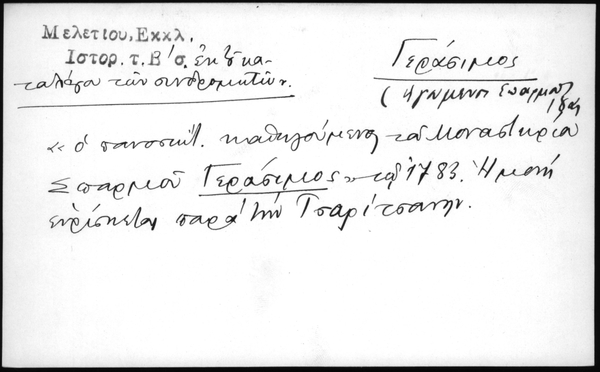 Μελετίου, Εκκλ.
Ιστορ. τ. Β' σ. ἐκ τοῦ κα-
ταλόγου τῶν συνδρομητῶν.
Γεράσιμος
(ἡγούμενος Σπαρμοῦ
« ὁ πανοσιώτ. καθηγούμενος τοῦ Μοναστηρίου
Σπαρμοῦ Γεράσιμος » τῷ 1783. Ἡ μονὴ
εὑρίσκεται παρὰ τὴν Τσαρίτσανην.